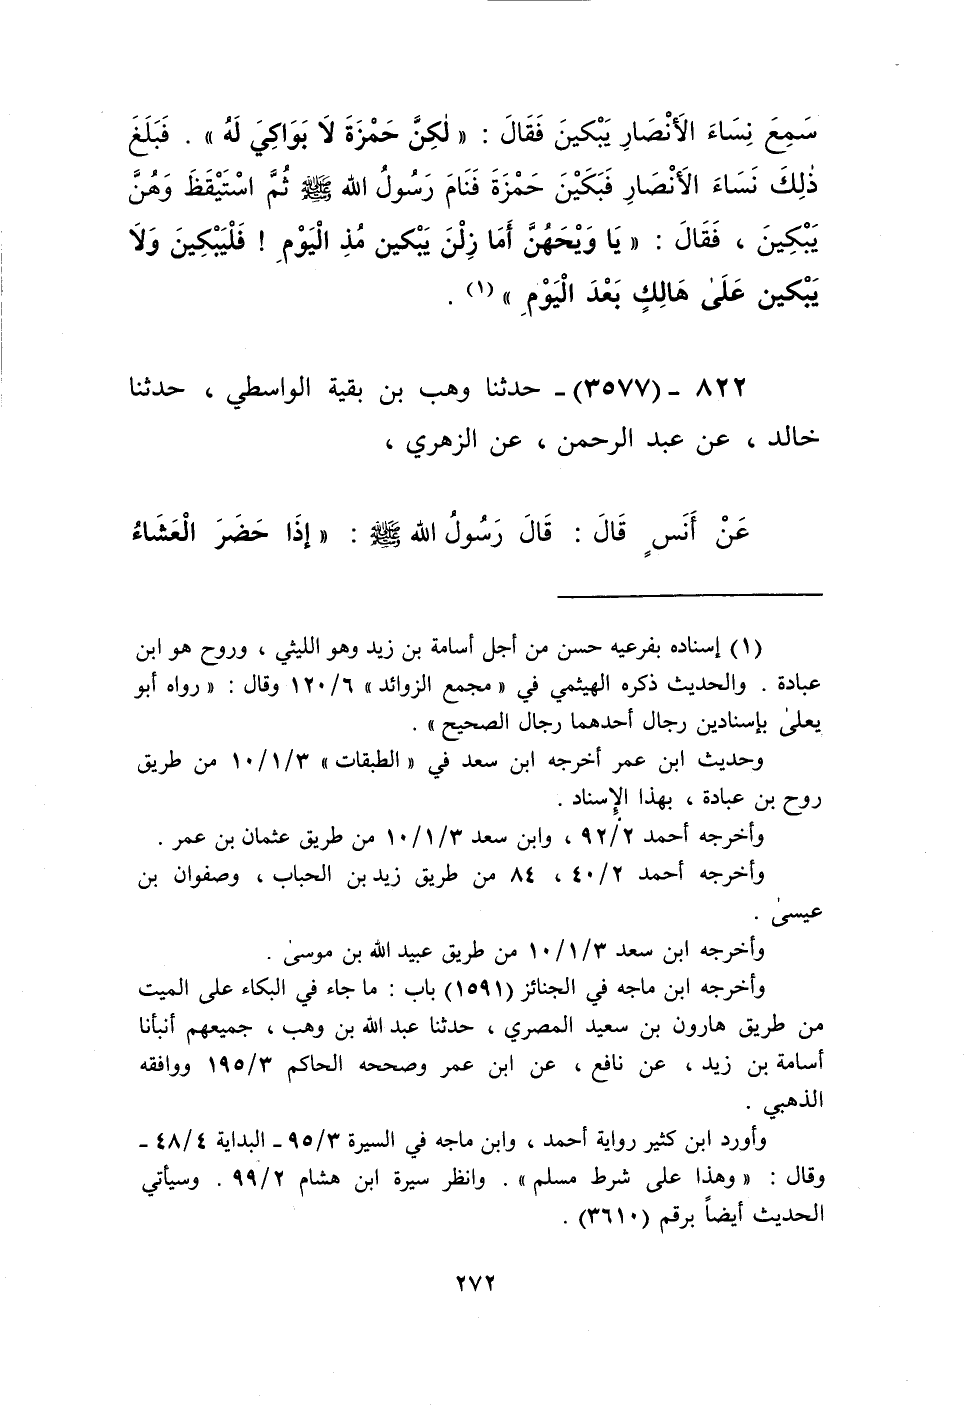 سَمِعَ نِسَاءَ الأَنْصَارِ يَبْكِينَ فَقَالَ : « لٰكِنَّ حَمْزَةَ لَا بَوَاكِيَ لَهُ » . فَبَلَغَ
ذٰلِكَ نَسَاءَ الأَنْصَارِ فَبَكَيْنَ حَمْزَةَ فَنَامَ رَسُولُ الله ﷺ ثُمَّ اسْتَيْقَظَ وَهُنَّ
يَبْكِينَ ، فَقَالَ : « يَا وَيْحَهُنَّ أَمَا زِلْنَ يَبْكين مُذِ الْيَوْمِ ! فَلْيَبْكِينَ وَلَا
يَبْكين عَلَىٰ هَالِكٍ بَعْدَ الْيَوْمِ » (١) .
٨٢٢ ـ (٣٥٧٧)ـ حدثنا وهب بن بقية الواسطي ، حدثنا
خالد ، عن عبد الرحمن ، عن الزهري ،
عَنْ أَنَسٍ قَالَ : قَالَ رَسُولُ الله ﷺ : « إذَا حَضَرَ الْعَشَاءُ
(١) إسناده بفرعيه حسن من أجل أسامة بن زيد وهو الليثي ، وروح هو ابن
عبادة . والحديث ذكره الهيثمي في « مجمع الزوائد » ١٢٠/٦ وقال : « رواه أبو
يعلىٰ بإسنادين رجال أحدهما رجال الصحيح » .
وحديث ابن عمر أخرجه ابن سعد في « الطبقات » ١٠/١/٣ من طريق
روح بن عبادة ، بهذا الإسناد .
وأخرجه أحمد ٩٢/٢ ، وابن سعد ١٠/١/٣ من طريق عثمان بن عمر .
وأخرجه أحمد ٤٠/٢ ، ٨٤ من طريق زيد بن الحباب ، وصفوان بن
عيسىٰ .
وأخرجه ابن سعد ١٠/١/٣ من طريق عبيد الله بن موسىٰ .
وأخرجه ابن ماجه في الجنائز (١٥٩١) باب : ما جاء في البكاء على الميت
من طريق هارون بن سعيد المصري ، حدثنا عبد الله بن وهب ، جميعهم أنبأنا
أسامة بن زيد ، عن نافع ، عن ابن عمر وصححه الحاكم ١٩٥/٣ ووافقه
الذهبي .
وأورد ابن كثير رواية أحمد ، وابن ماجه في السيرة ٩٥/٣ ـ البداية ٤٨/٤ ـ
وقال : « وهذا على شرط مسلم » . وانظر سيرة ابن هشام ٩٩/٢ . وسيأتي
الحديث أيضاً برقم (٣٦١٠) .
٢٧٢